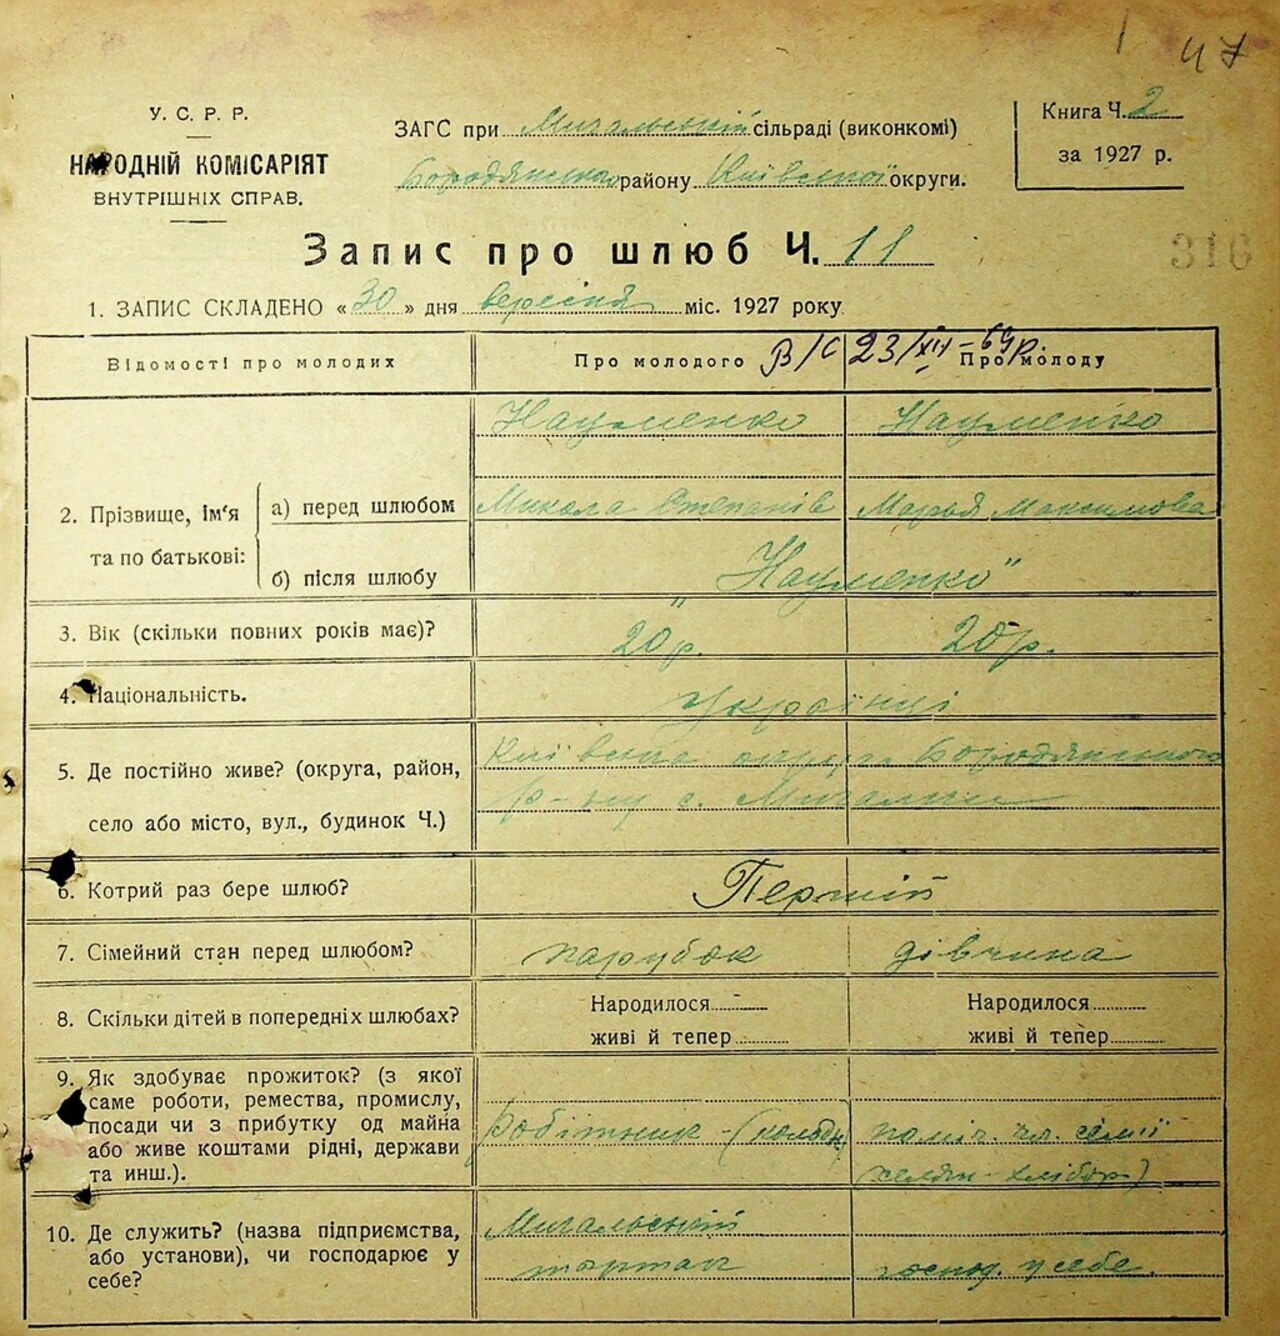 47
У. С. Р. Р.
НАРОДНІЙ КОМІСАРІЯТ
ВНУТРІШНІХ СПРАВ.
ЗАГС при Мигальській сільраді (виконкомі)
Бородянського району Київської округи.
Книга Ч. 2
за 1927 р.
Запис про шлюб Ч. 11
316
1. ЗАПИС СКЛАДЕНО « 30 » дня вересня міс. 1927 року
Відомості про молодих
Про молодого
В/С 23/XII-69р.
Про молоду
2. Прізвище, ім'я та по батькові:
а) перед шлюбом
Науменко
Микола Степанів
Науменко
Максимова
б) після шлюбу
"Науменко"
3. Вік (скільки повних років має)?
20 р.
20 р.
4. Національність.
Українці
5. Де постійно живе? (округа, район,
село або місто, вул., будинок Ч.)
Київська округа Бородянського
р-ну с. Мигалки
6. Котрий раз бере шлюб?
Перший
7. Сімейний стан перед шлюбом?
парубок
дівчина
8. Скільки дітей в попередніх шлюбах?
Народилося
живі й тепер
Народилося
живі й тепер
9. Як здобуває прожиток? (з якої
саме роботи, ремества, промислу,
посади чи з прибутку од майна
або живе коштами рідні, держави
та инш.).
Робітник
поміч. чл. сім'ї
(селян-хлібор)
10. Де служить? (назва підприємства,
або установи), чи господарює у
себе?
Мигальський
тартак
господ. у себе.